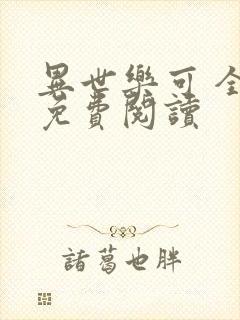 異世樂可 全
免費閱讀
諸葛也胖